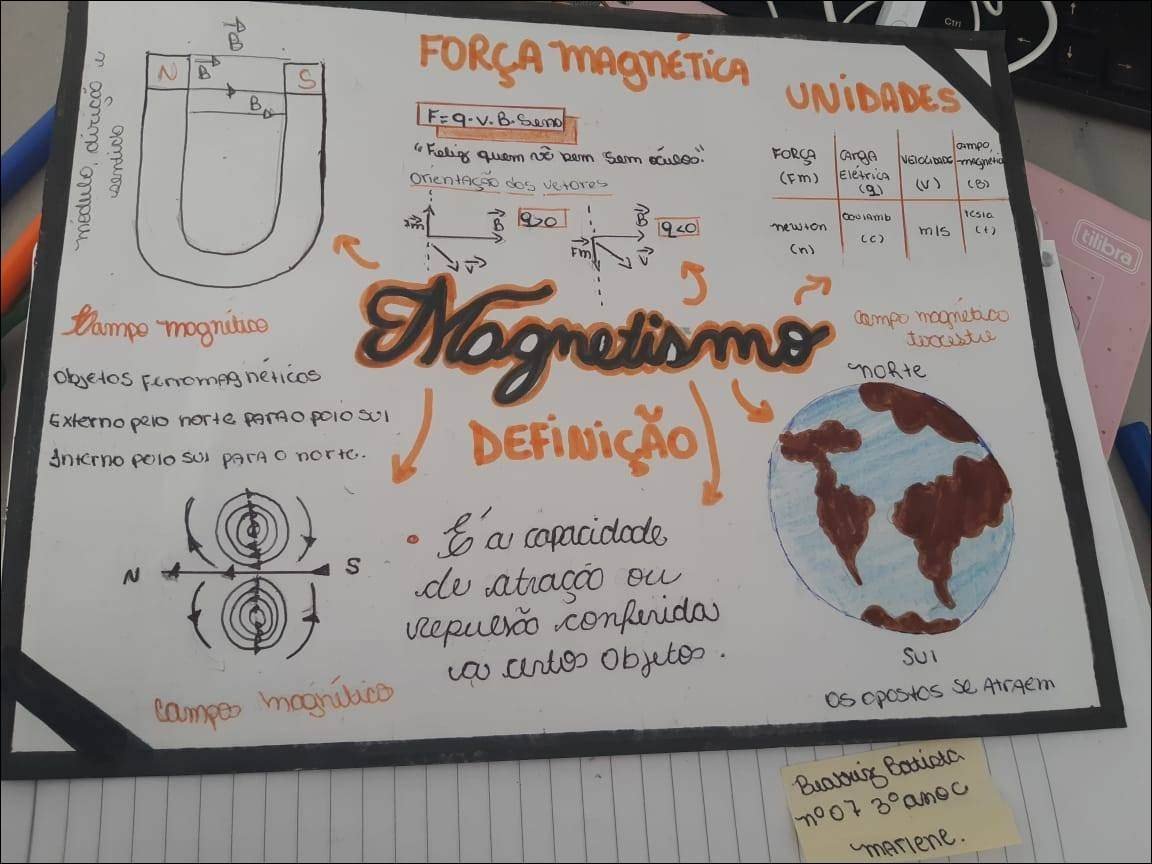 módulo, direção e
sentido
B
N
B
B
S
Campo magnético
FORÇA MAGNÉTICA
F=q.V.B.Senθ
"Feliz quem vê bem sem óculos".
Orientação dos vetores
Fm
B
V
q>0
Fm
B
V
q<0
UNIDADES
FORÇA
(Fm)
CARGA
Elétrica
(q)
VELOCIDADE
(V)
campo
magnético
(B)
newton
(n)
coulomb
(c)
m/s
tesla
(t)
Magnetismo
Objetos Ferromagnéticos
Externo pelo norte PARA O polo sul
Interno polo sul PARA O norte.
N
S
campo magnético
DEFINIÇÃO
• É a capacidade
de atração ou
repulsão conferida
a certos objetos.
campo magnético
terrestre
NORTE
SUL
OS OPOSTOS SE ATRAEM
Beatriz Batista
nº07 3º ano C
MARLENE.
tilibra
Ctrl